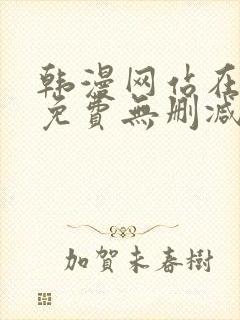 韩漫网站在
免費無删减
加賀未春樹